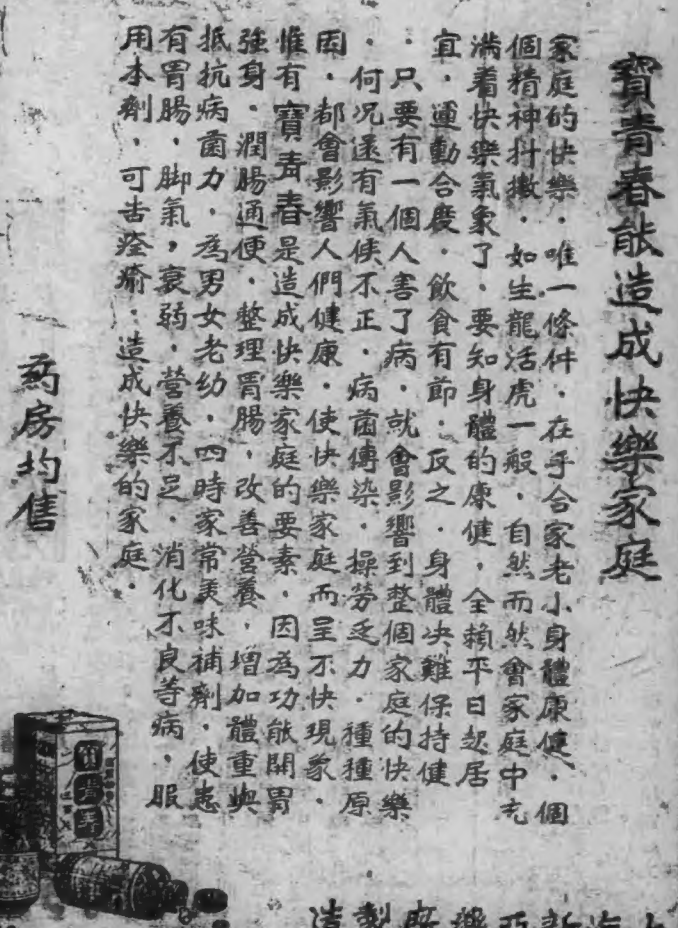 寶青春能造成快樂家庭
家庭的快樂．唯一條件．在乎合家老小身體康健．個
個精神抖擻．如生龍活虎一般．自然而然會家庭中充
滿着快樂氣象了．要知身體的康健，全賴平日起居
宜．運動合度．飲食有節．反之．身體决難保持健
．只要有一個人害了病．就會影響到整個家庭的快樂
．何况還有氣候不正．病菌傳染．操勞乏力．種種原
因．都會影響人們健康．使快樂家庭而呈不快現象．
惟有寶青春是造成快樂家庭的要素．因為功能開胃
強身．潤腸通便．整理胃腸，改善營養．增加體重與
抵抗病菌力．為男女老幼．四時家常美味補劑．使患
有胃腸，脚氣，衰弱．營養不足．消化不良等病．服
用本劑．可告痊瘉．造成快樂的家庭．
药房均售
寶青春
上海新亞藥廠製造